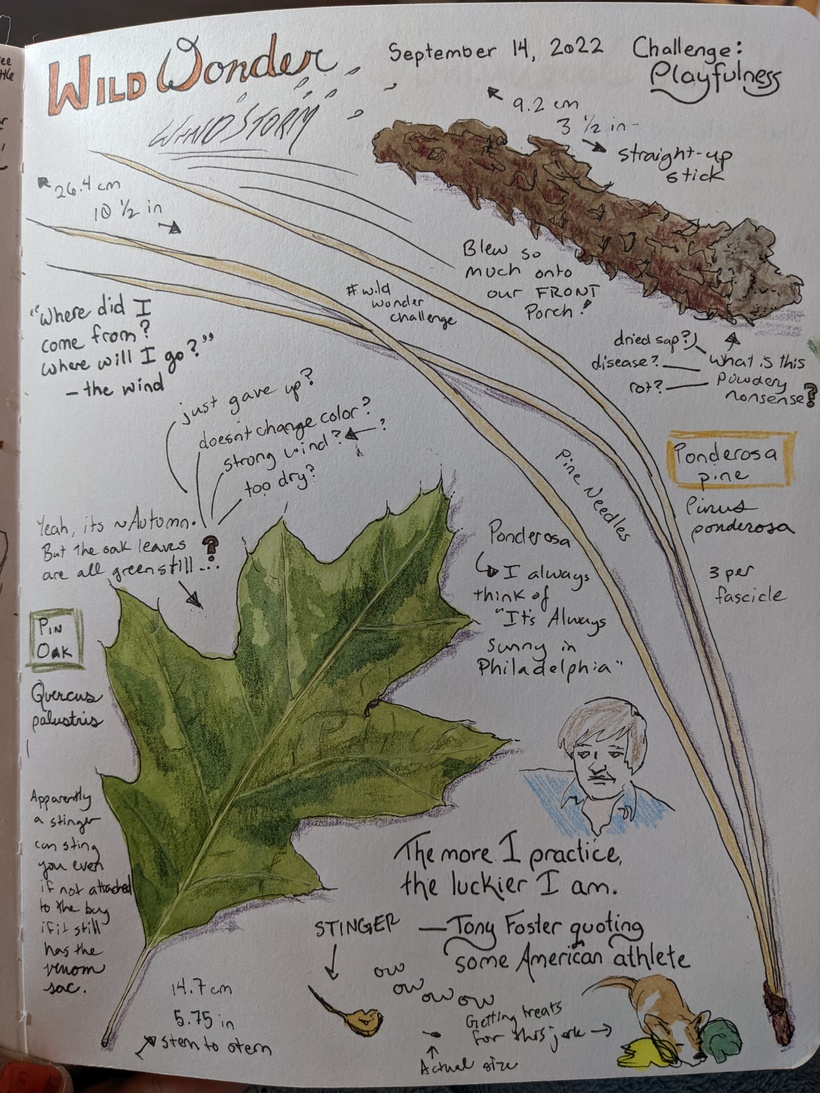 WILD Wonder
September 14, 2022 Challenge:
Playfulness
WIND STORM
9.2 cm
3 1/2 in
straight-up
stick
26.4 cm
10 1/2 in
Blew so
much onto
our FRONT
Porch!
#wild
wonder
challenge
"Where did I
come from?
Where will I go?"
- the wind
dried sap?
disease?
rot?
What is this
powdery
nonsense?
just gave up?
doesnt change color?
strong wind? ?
too dry?
Ponderosa
pine
Pinus
ponderosa
3 per
fascicle
Pine Needles
Yeah, its ~Autumn.
But the oak leaves
are all green still...?
Ponderosa
I always
think of
"It's Always
Sunny in
Philadelphia"
PIN
OAK
Quercus
palustris
Apparently
a stinger
can sting
you even
if not attached
to the bug
if it still
has the
venom
sac.
The more I practice,
the luckier I am.
— Tony Foster quoting
some American athlete
STINGER
ow
ow ow ow
14.7 cm
5.75 in
stem to stern
Getting treats
for this jerk
Actual size